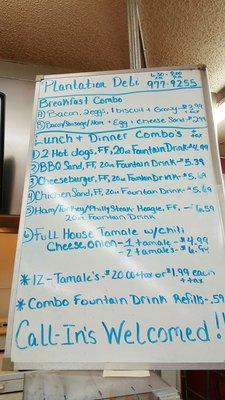 Plantation Deli 6:30 - 8:00
977-9255
Breakfast Combo
A) Bacon, 2 eggs, 1 biscuit + Gravy - $3.99
+ tax
B) Bacon/Sausage/Ham + Egg + Cheese Sand. $2.99
Lunch + Dinner Combo's + tax
1) 2 Hot dogs, FF, 20oz Fountain Drink - $4.99
2) BBQ Sand, FF, 20oz Fountain Drink - $5.39
3) Cheeseburger, FF, 20oz Fountain Drink - $5.69
4) Chicken Sand, FF, 20oz Fountain Drink - $5.69
5) Ham/Turkey/Philly Steak Hoagie, FF, - $6.59
20oz Fountain Drink
6) Full House Tamale w/chili
Cheese, onion - 1 tamale - $4.99
- 2 tamale's - $6.94
* 12 - Tamale's - $20.00 + tax or $1.99 each
+ tax
* Combo Fountain Drink Refills - .59
Call-In's Welcomed!!